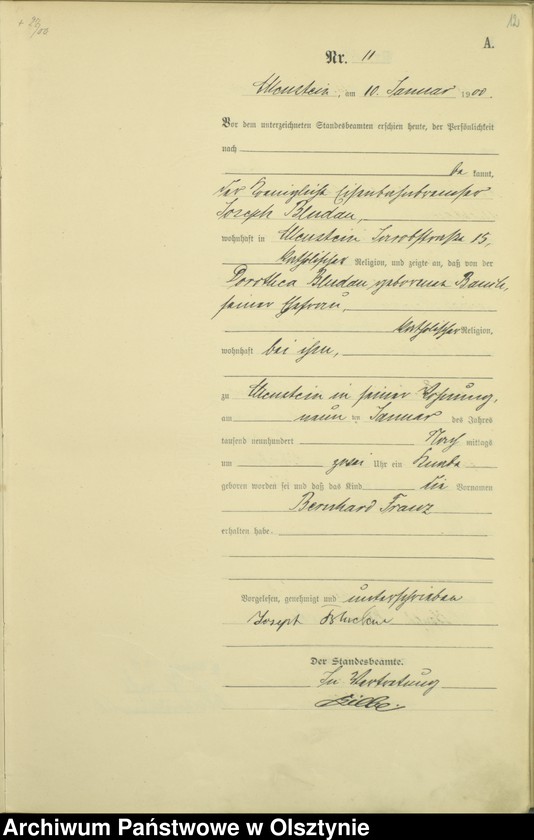 12
A.
Nr. 11
Allenstein, am 10. Januar 1900.
Vor dem unterzeichneten Standesbeamten erschien heute, der Persönlichkeit
nach
be kannt,
der Königliche Eisenbahnbremser
Joseph Bludau,
wohnhaft in Allenstein Jakobstraße 15,
katholischer Religion, und zeigte an, daß von der
Dorothea Bludau geborenen
seiner Ehefrau,
katholischer Religion,
wohnhaft bei ihm,
zu Allenstein in seiner Wohnung,
am neun ten Januar des Jahres
tausend neunhundert Nach mittags
um zwei Uhr ein Knabe
geboren worden sei und daß das Kind die Vornamen
Bernhard Franz
erhalten habe.
Vorgelesen, genehmigt und unterschrieben
Joseph Bludau
Der Standesbeamte.
In Vertretung
Archiwum Państwowe w Olsztynie